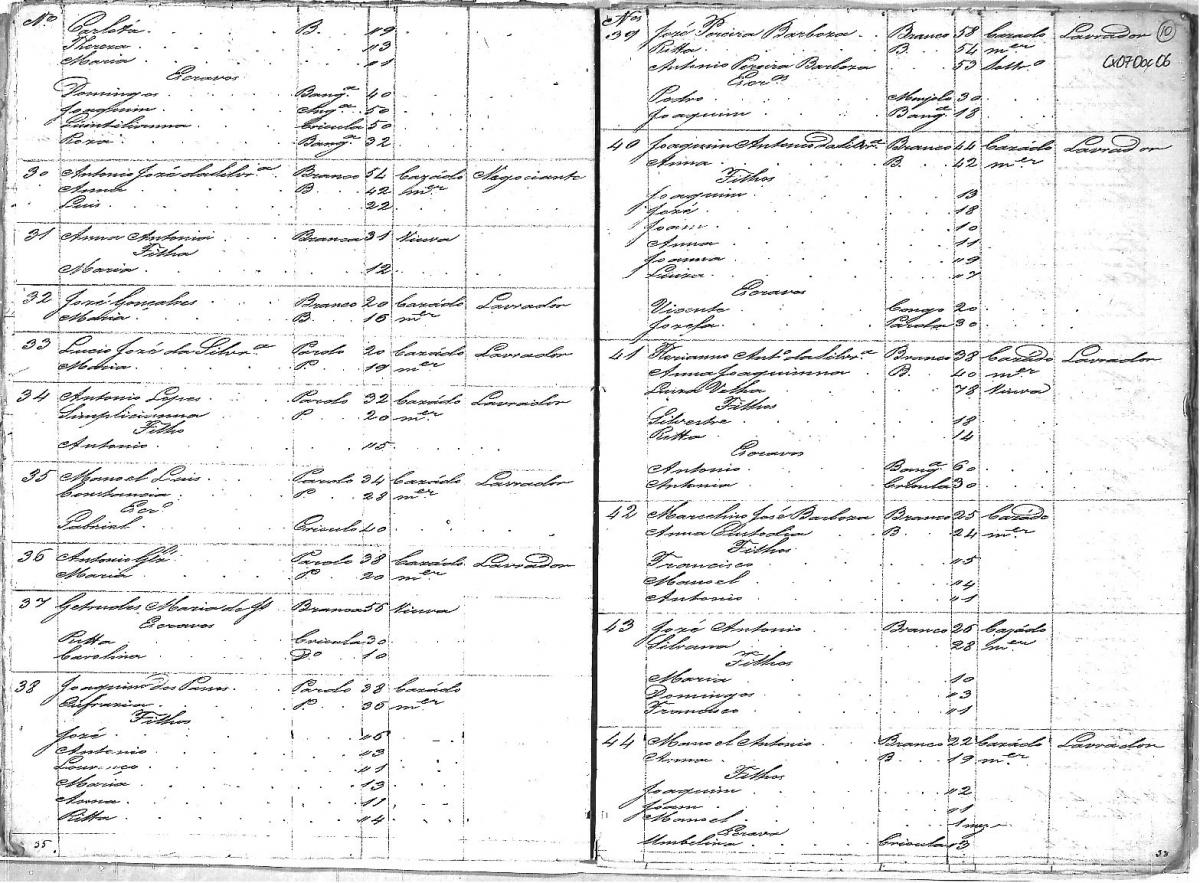 Nº
Carlota B. 09
Thereza 03
Maria 01
Escravos
Domingos Bangª 40
Joaquim Angª 50
Quintilianna Crioula 50
Roza Bangª 32
30 Antonio José da Silvª Branco 54 Cazádo Negociante
Anna B. 42 mer
Luis 22
31 Anna Antonia Branca 31 Viuva
Filha
Maria 12
32 José Gonçalves Branco 20 Cazádo Lavrador
Maria B 16 mer
33 Lucio José da Silvª Pardo 20 Cazádo Lavrador
Maria P. 19 mer
34 Antonio Lopes Pardo 32 Cazádo Lavrador
Simplicianna P 20 mer
Filho
Antonio 05
35 Manoel Luis Pardo 34 Cazádo Lavrador
Constancia P 28 mer
Escº
Gabriel Crioulo 40
36 Antonio Glz Pardo 38 Cazádo Lavrador
Maria P. 20 mer
37 Getrudes Maria de Branca 56 Viuva
Escravos
Ritta Crioula 30
Carolina Dº 10
38 Joaquim dos Pardo 38 Cazádo
Eufrazia P. 36 mer
Filhos
José 06
Antonio 03
Lourenço 01
Maria 13
Anna 11
Ritta 04
35
Nos
39 José Pereira Barboza Branco 58 Cazádo Lavrador
10
Ritta B. 54 mer
Cx07Doc06
Antonio Pereira Barboza 53 Soltrº
Escos
Pedro Monjolo 30
Joaquim Bangª 18
40 Joaquim Antonio da Silvª Branco 44 Cazádo Lavrador
Anna B. 42 mer
Filhos
Joaquim 13
José 18
Joam 10
Anna 11
Joanna 09
Luiza 07
Escravos
Vicente Congo 20
Josefa Parda 30
41 Florianno Antº da Silvª Branco 38 Cazádo Lavrador
Anna Joaquinna B. 40 mer
Luiza Velha 78 Viuva
Filhos
Silvestre 18
Ritta 14
Escravos
Antonio Bangª 60
Antonia Crioula 30
42 Marselino José Barboza Branco 25 Cazádo
Anna Custodia B. 24 mer
Filhos
Francisco 05
Manoel 04
Antonio 01
43 José Antonio Branco 26 Cazádo
Silvana 28 mer
Filhos
Maria 10
Domingos 03
Francisco 01
44 Manoel Antonio Branco 22 Cazádo Lavrador
Anna B 19 mer
Filhos
Joaquim 02
Joam 01
Manoel 1 mez
Escrava
Umbelina Crioula 3